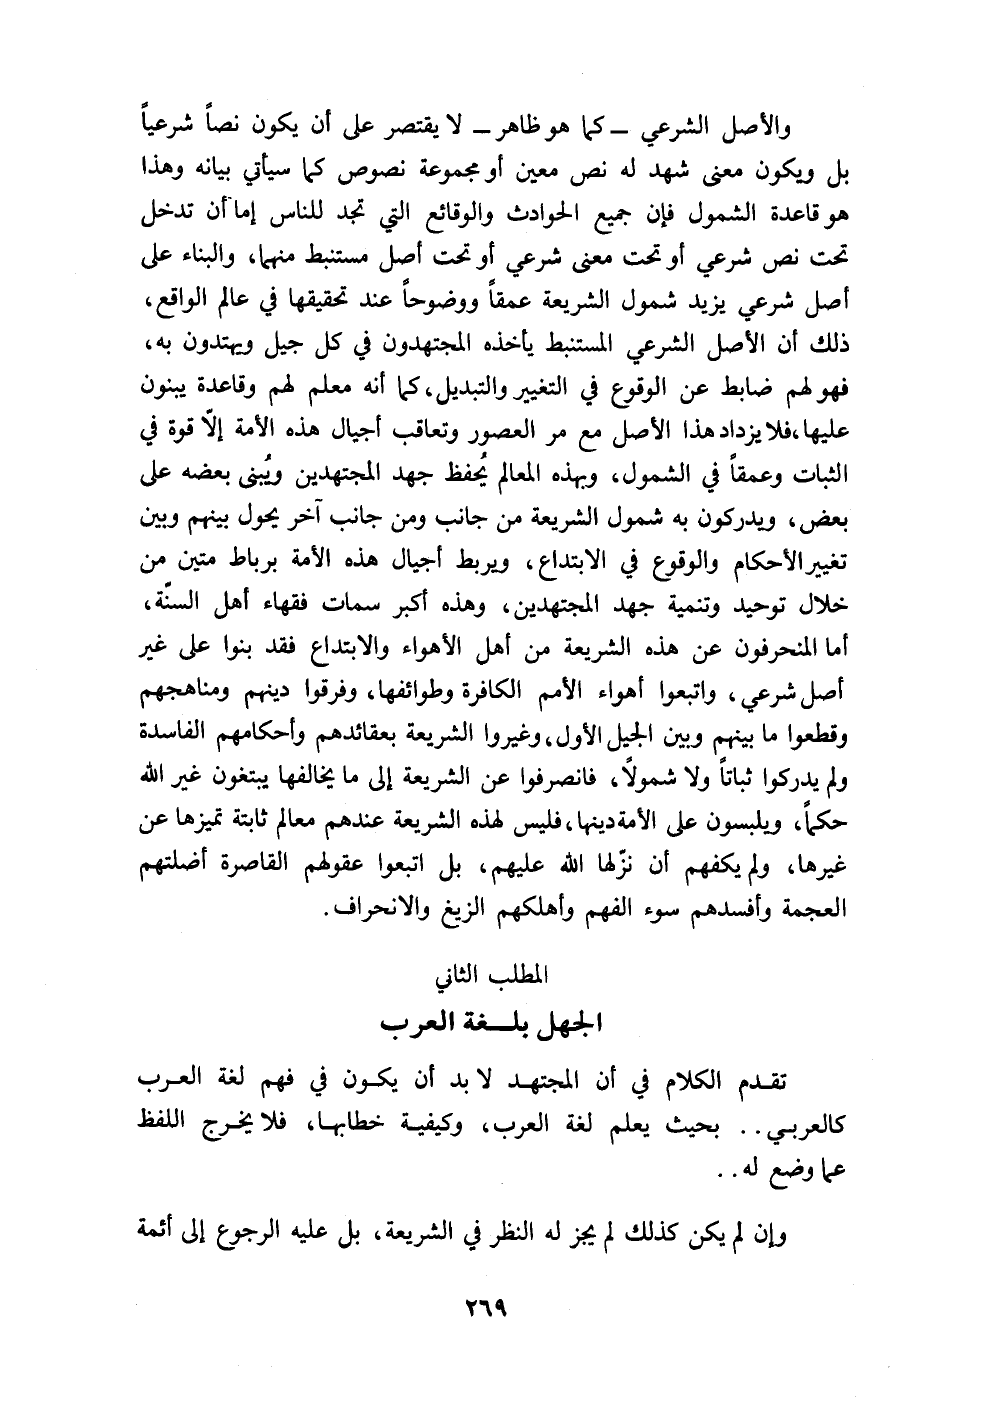 والأصل الشرعي ــ كما هو ظاهر ــ لا يقتصر على أن يكون نصاً شرعياً
بل ويكون معنى شهد له نص معين أو مجموعة نصوص كما سيأتي بيانه وهذا
هو قاعدة الشمول فإن جميع الحوادث والوقائع التي تجد للناس إما أن تدخل
تحت نص شرعي أو تحت معنى شرعي أو تحت أصل مستنبط منهما، والبناء على
أصل شرعي يزيد شمول الشريعة عمقاً ووضوحاً عند تحقيقها في عالم الواقع،
ذلك أن الأصل الشرعي المستنبط يأخذه المجتهدون في كل جيل ويهتدون به،
فهو لهم ضابط عن الوقوع في التغيير والتبديل، كما أنه معلم لهم وقاعدة يبنون
عليها، فلا يزداد هذا الأصل مع مر العصور وتعاقب أجيال هذه الأمة إلّا قوة في
الثبات وعمقاً في الشمول، وبهذه المعالم يُحفظ جهد المجتهدين ويُبنى بعضه على
بعض، ويدركون به شمول الشريعة من جانب ومن جانب آخر يحول بينهم وبين
تغيير الأحكام والوقوع في الابتداع، ويربط أجيال هذه الأمة برباط متين من
خلال توحيد وتنمية جهد المجتهدين، وهذه أكبر سمات فقهاء أهل السنّة،
أما المنحرفون عن هذه الشريعة من أهل الأهواء والابتداع فقد بنوا على غير
أصل شرعي، واتبعوا أهواء الأمم الكافرة وطوائفها، وفرقوا دينهم ومناهجهم
وقطعوا ما بينهم وبين الجيل الأول، وغيروا الشريعة بعقائدهم وأحكامهم الفاسدة
ولم يدركوا ثباتاً ولا شمولًا، فانصرفوا عن الشريعة إلى ما يخالفها يبتغون غير الله
حكماً، ويلبسون على الأمة دينها، فليس لهذه الشريعة عندهم معالم ثابتة تميزها عن
غيرها، ولم يكفهم أن نزّلها الله عليهم، بل اتبعوا عقولهم القاصرة أضلتهم
العجمة وأفسدهم سوء الفهم وأهلكهم الزيغ والانحراف.
المطلب الثاني
الجهل بلــغة العرب
تقـدم الكلام في أن المجتهـد لا بد أن يكـون في فهم لغة العـرب
كالعربـي.. بحيث يعلم لغة العرب، وكيفيـة خطابهـا، فلا يخـرج اللفظ
عما وضع له..
وإن لم يكن كذلك لم يجز له النظر في الشريعة، بل عليه الرجوع إلى أئمة
٢٦٩